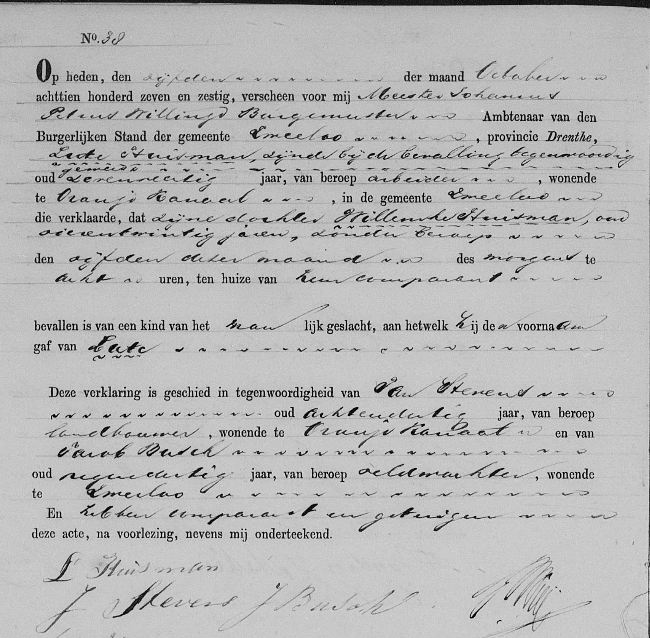 No. 38
Op heden, den vijfden der maand October
achttien honderd zeven en zestig, verscheen voor mij Meester Johannes
Petrus Willinge Burgemeester Ambtenaar van den
Burgerlijken Stand der gemeente Zweeloo, provincie Drenthe,
Lute Huisman, zijnde bij de bevalling tegenwoordig
geweest
oud jaar, van beroep arbeider, wonende
te Oranje Kanaal, in de gemeente Zweeloo
die verklaarde, dat zijne dochter Willemke Huisman, oud
vierentwintig jaren, zonder beroep
den vijfden dezer maand des morgens te
acht uren, ten huize van hem comparant
bevallen is van een kind van het man lijk geslacht, aan hetwelk hij de n voornaam
gaf van Lute
Deze verklaring is geschied in tegenwoordigheid van Jan Stevens
oud achtendertig jaar, van beroep
landbouwer, wonende te Oranje Kanaal en van
Jacob Busch
oud jaar, van beroep veldwachter, wonende
te Zweeloo
En hebben comparant en getuigen
deze acte, na voorlezing, nevens mij onderteekend.
L Huisman
J Stevens J Busch